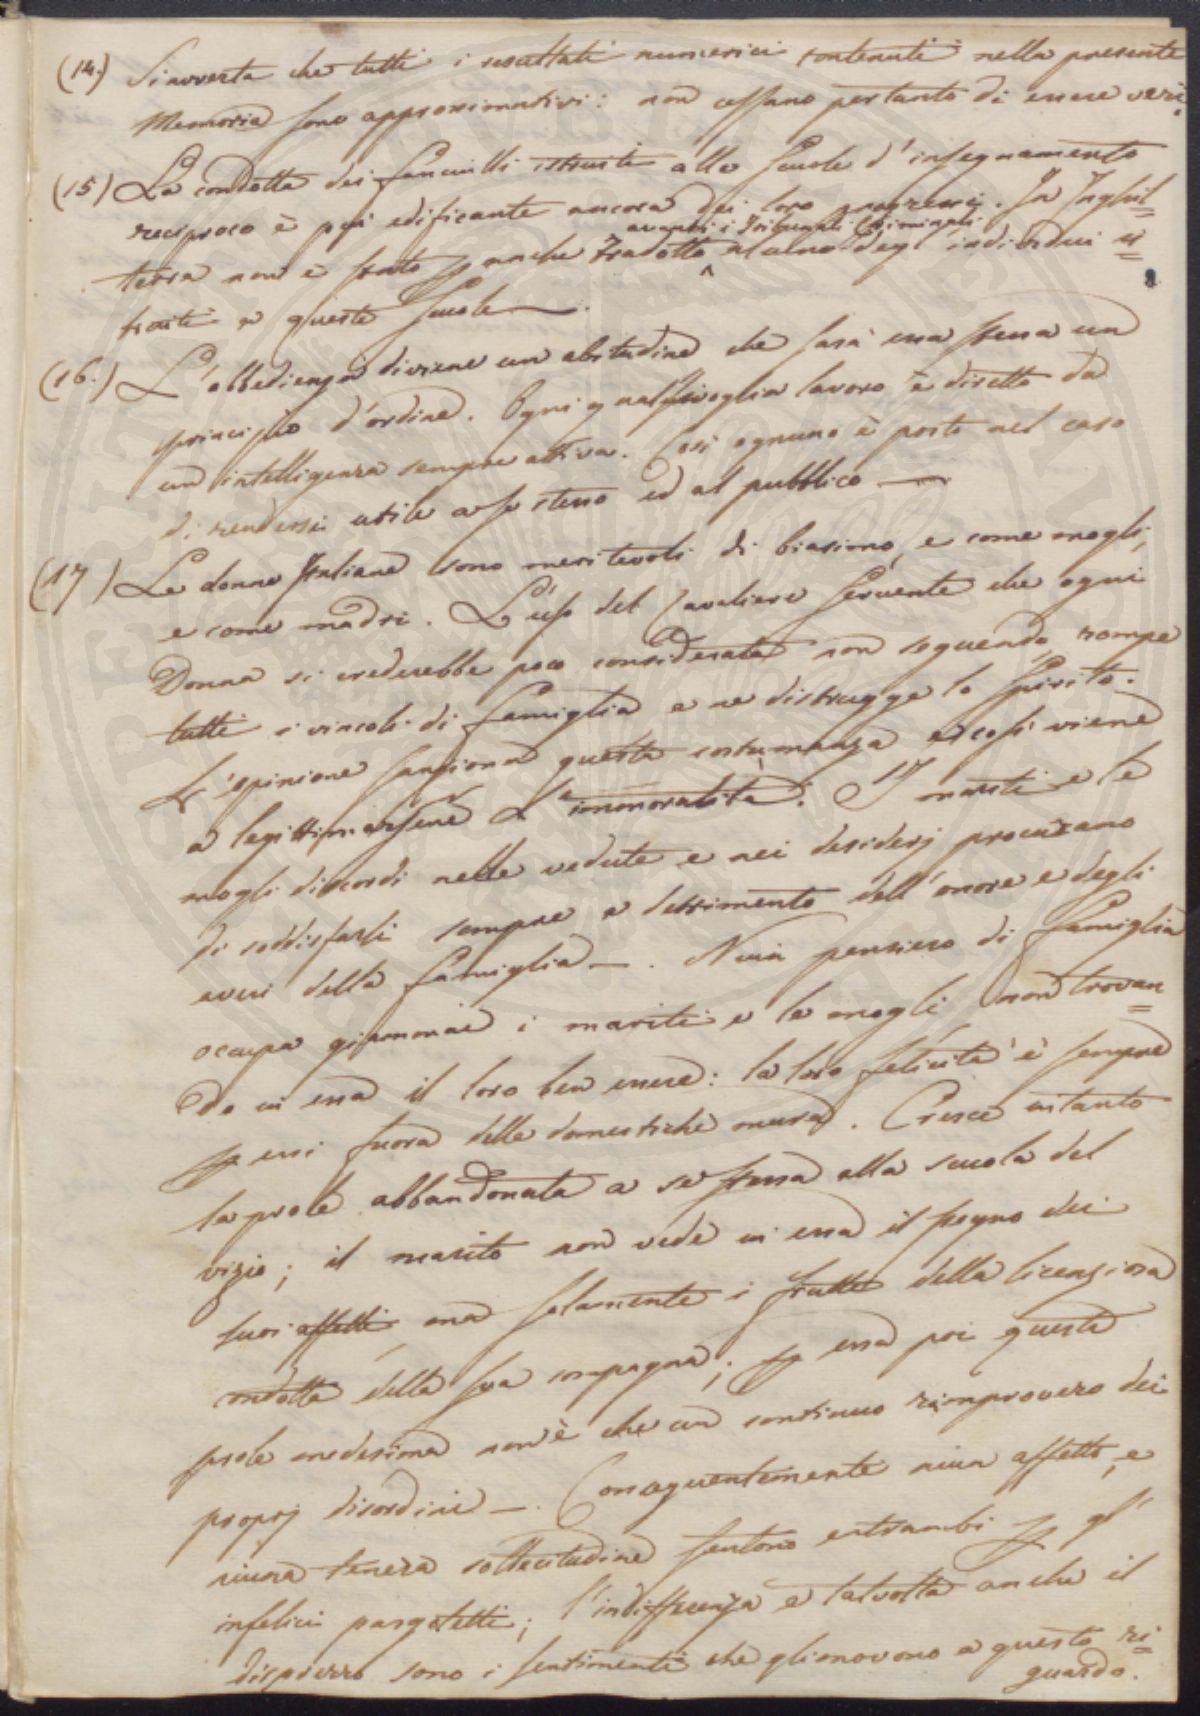 (14.) Si avverta che tutti i resultati numerici contenuti nella presente
Memoria sono approssimativi: non cessano pertanto di essere veri.
(15) La condotta dei fanciulli istruiti alle Scuole d'insegnamento
reciproco è più edificante ancora dei loro progressi. In Inghil=
avanti i Tribunali Criminali
terra non è stato p anche tradotto alcuno degl' individui is=
truiti a queste Scuole —.
(16.) L'obbedienza diviene un abitudine che sarà essa stessa un
principio d'ordine. Ogni qualsivoglia lavoro è diretto da
un intelligenza sempre attiva. Così ognuno è posto nel caso
di rendersi utile a se stesso ed al pubblico —
(17) Le donne Italiane sono meritevoli di biasimo, e come mogli,
e come madri. L'uso del Cavaliere Servente che ogni
Donna si crederebbe poco considerata non seguendo, rompe
tutti i vincoli di famiglia e ne distrugge lo Spirito.
L'opinione sanziona questa costumanza e così viene
a legittimarsene l'immoralità. I mariti e le
mogli discordi nelle vedute e nei desiderj procurano
di soddisfarli sempre a detrimento dell'onore e degli
averi della famiglia —. Niun pensiero di famiglia
occupa giammai i mariti e le mogli non trovan=
do in essa il loro ben essere: la loro felicità è sempre
p essi fuora delle domestiche mura. Cresce intanto
la prole abbandonata a se stessa alla scuola del
vizio; il marito non vede in essa il pegno dei
suoi affetti, ma solamente i frutti della licenziosa
condotta della sua compagna; p essa poi questa
prole medesima non è che un continuo rimprovero dei
proprj disordini —. Conseguentemente niun affetto, e
niuna tenera sollecitudine sentono entrambi p gl'
infelici pargoletti; l'indifferenza e talvolta anche il
disprezzo sono i sentimenti che gli movono a questo ri=
guardo.